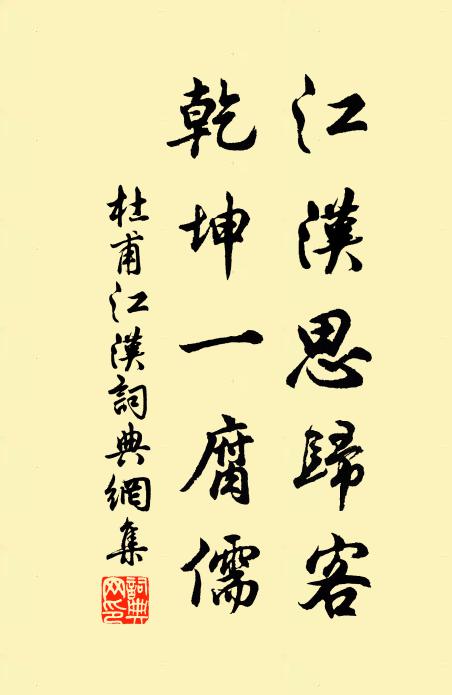 江漢思歸客
乾坤一腐儒
杜甫江漢詞典網集
詞典网印